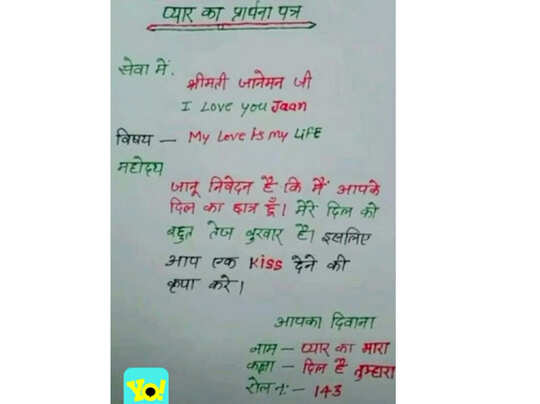 प्यार का प्रार्थना पत्र
सेवा में.
श्रीमती जानेमन जी
I Love you Jaan
विषय — My Love is my LiFE
महोदय
जानू निवेदन है कि मैं आपके
दिल का छात्र हूँ। मेरे दिल को
बहुत तेज बुखार है। इसलिए
आप एक Kiss देने की
कृपा करे।
आपका दिवाना
नाम — प्यार का मारा
कक्षा — दिल है तुम्हारा
रोल नं: — 143
YO!